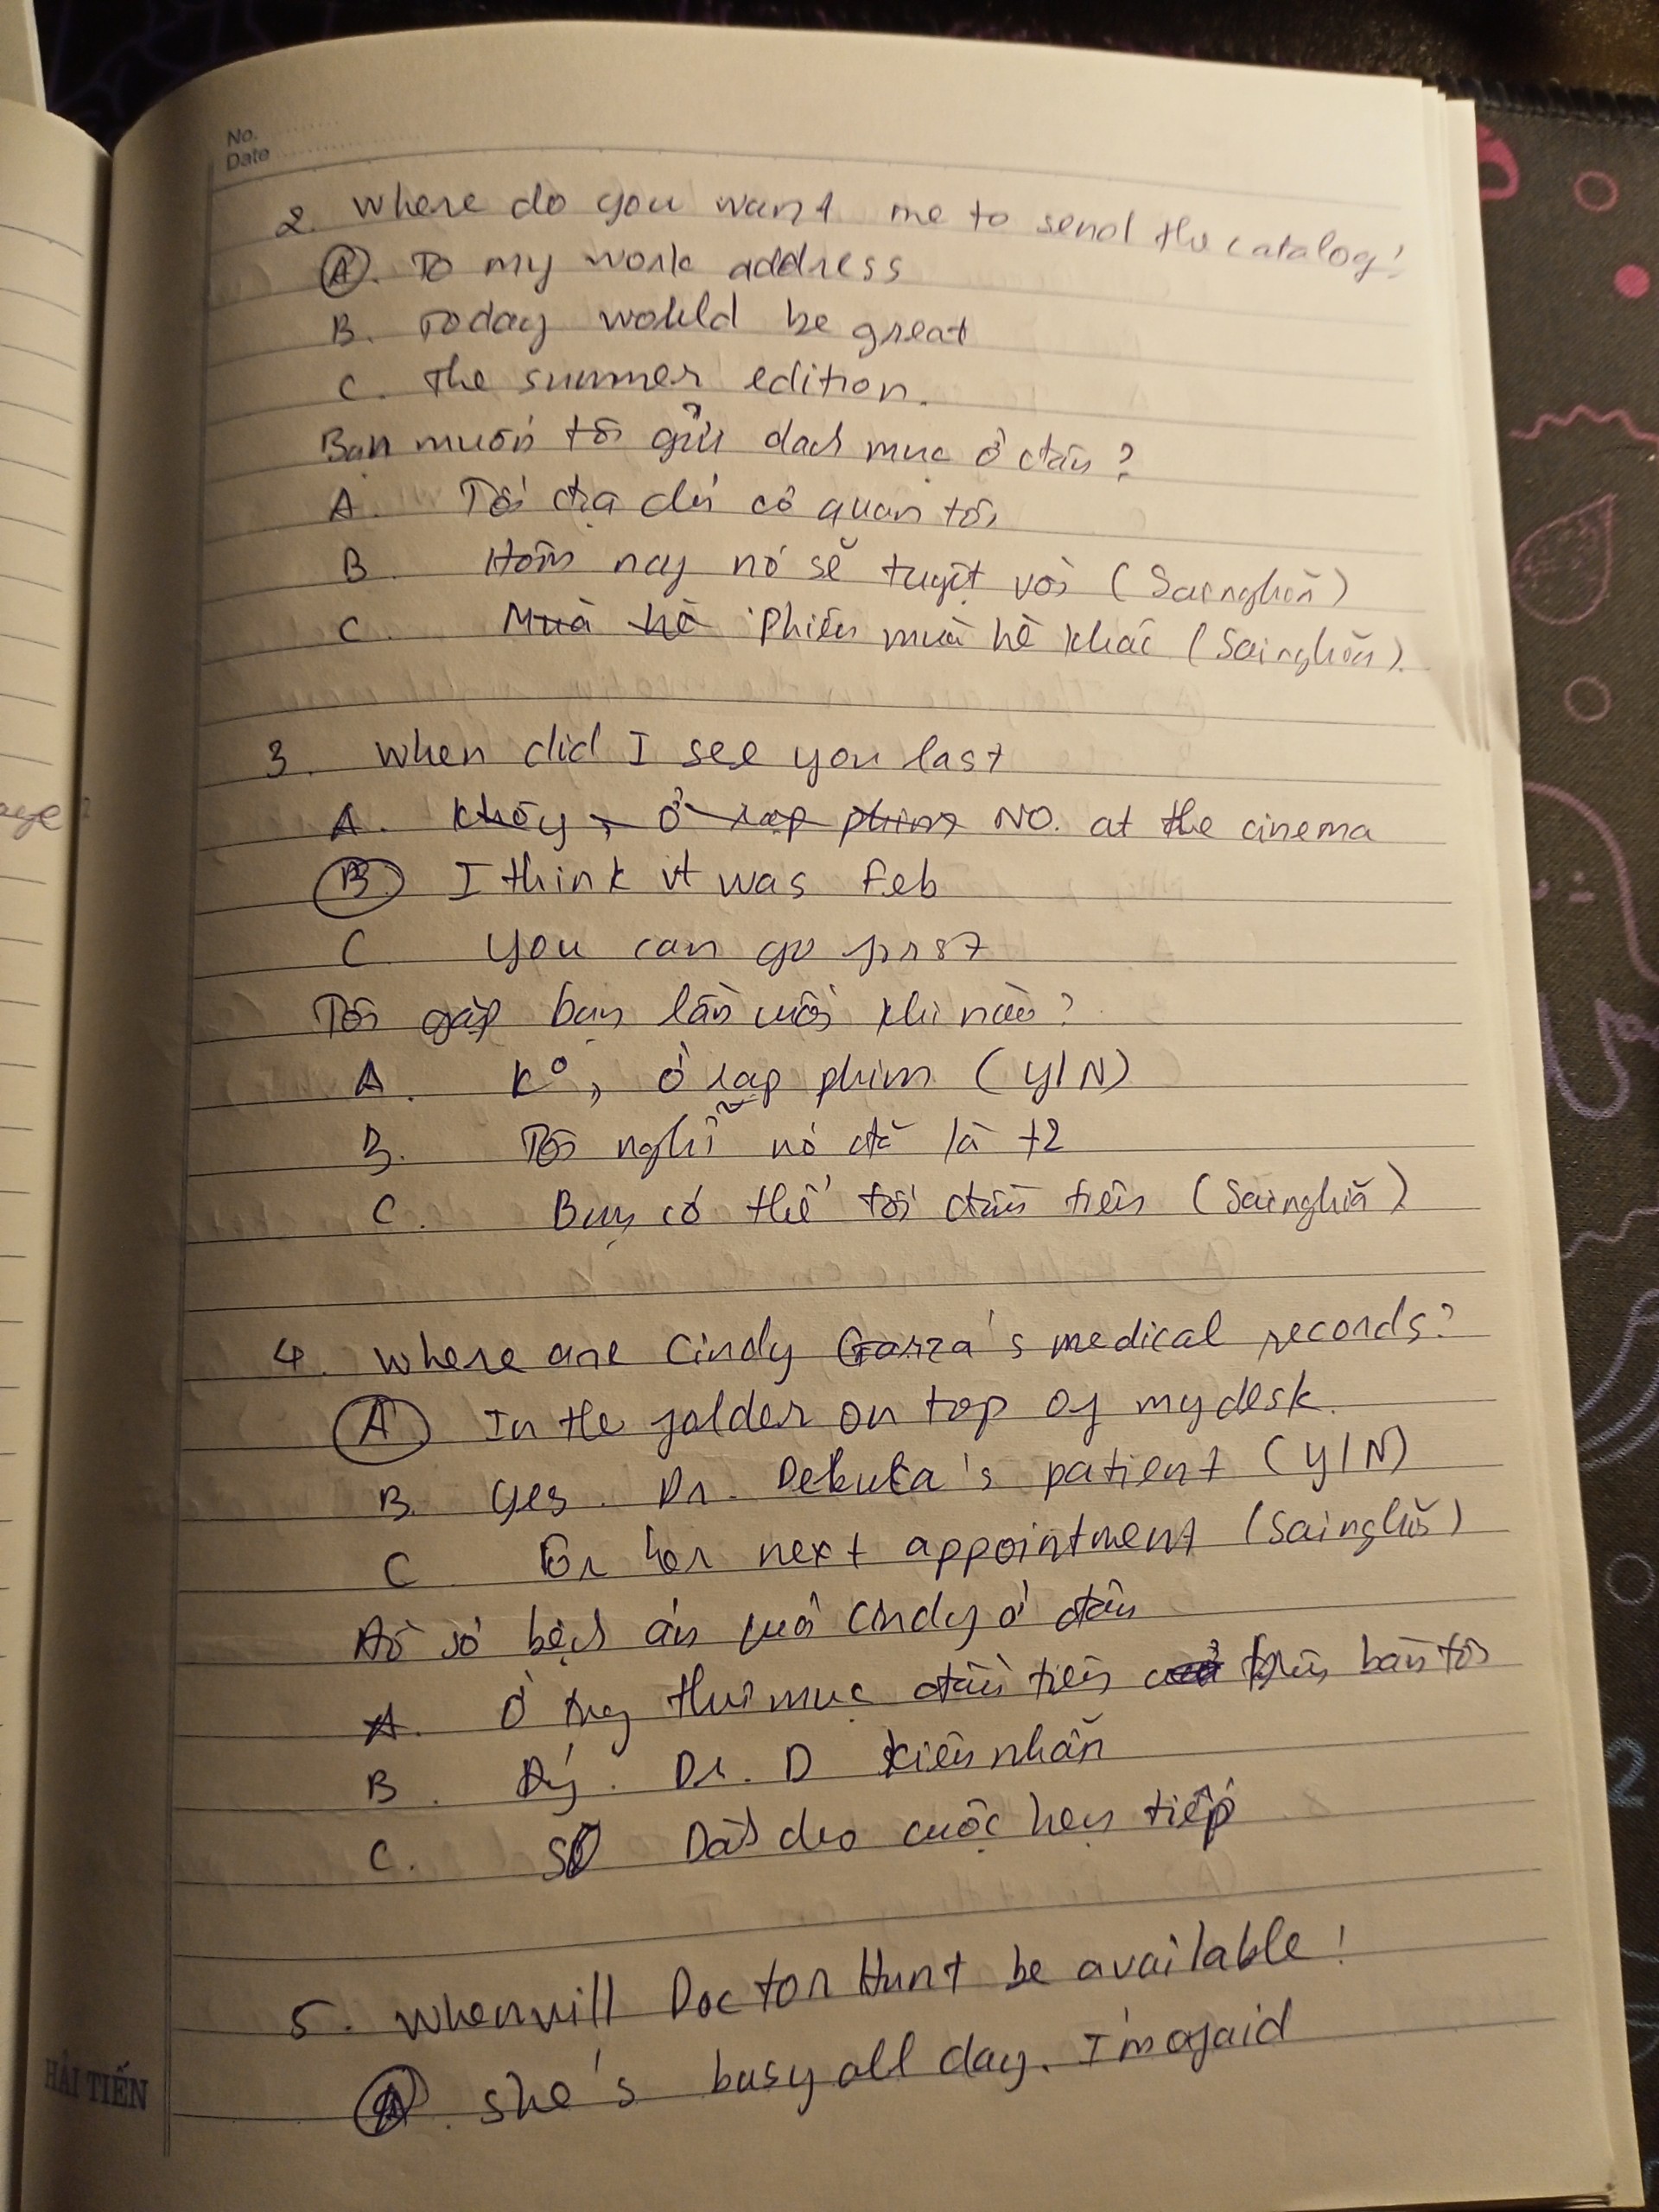 No.
Date
2. Where do you want me to send the catalog?
A. To my work address
B. Today would be great
C. the summer edition.
Bạn muốn tôi gửi dach mục ở đâu?
A. Tới địa chỉ cơ quan tôi
B. Hôm nay nó sẽ tuyệt vời (Sai nghĩa)
C. Mùa hè Phiên mùa hè khác (Sai nghĩa).
3. When did I see you last
A. Không, ở rạp phim NO. at the cinema
B. I think it was Feb
C. You can go first
Tôi gặp bạn lần cuối khi nào?
A. K°, ở rạp phim (Y/N)
B. Tôi nghĩ nó đã là t2
C. Bạn có thể tới đầu tiên (Sai nghĩa)
4. Where are Cindy Garza's medical records?
A. In the folder on top of my desk.
B. Yes. Dr. 's patient (Y/N)
C. For her next appointment (Sai nghĩa)
bệnh án của Cindy ở đâu
A. Ở trong thư mục đầu tiên trên bàn tôi
B. Dr. D kiên nhẫn
C. cuộc hẹn tiếp
5. When will Doctor Hunt be available!
A. she's busy all day. I'm afraid
HẢI TIẾN